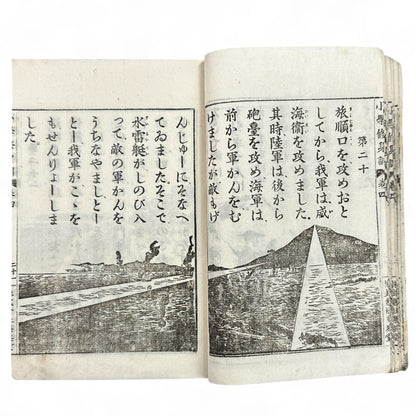 第二十
旅順口を攻めおと
してから、我軍は、威
海衞を攻めました。
其時陸軍は、後から
砲臺を攻め、海軍は、
前から、軍かんをむ
けましたが、敵もげ
んじゅーにそなへ
てゐました。そこで
水雷艇がしのび入
って、敵の軍かんを
うちなやましとー
とー我軍がこゝを
もせんりょーしま
した。